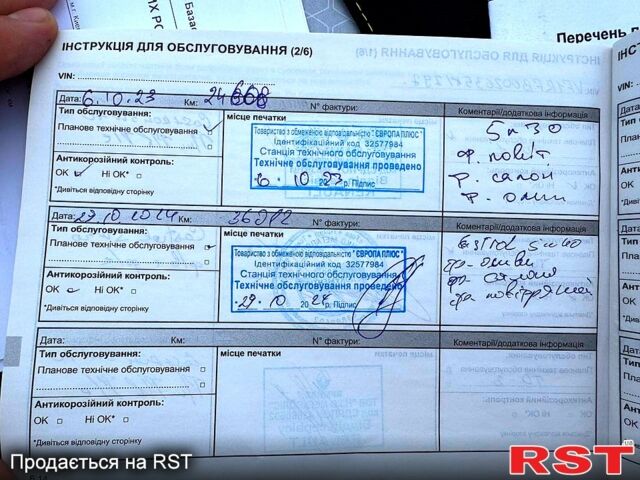 База
Перечень д
ІНСТРУКЦІЯ ДЛЯ ОБСЛУГОВУВАННЯ (2/6)
VIN:
Дата: 6.10.23 Км: 24 № фактури: Коментарі/додаткова інформація
Тип обслуговування: місце печатки
Планове технічне обслуговування
Товариство з обмеженою відповідальністю "ЄВРОПА ПЛЮС"
Ідентифікаційний код 32577984
Станція технічного обслуговування
Технічне обслуговування проведено
6 10 2023 р. Підпис
5w30
ф. повіт
ф. салон
ф. оливи
Антикорозійний контроль:
OK Ні OK*
*Дивіться відповідну сторінку
Дата: 29.10.2024 Км: 36912 № фактури: Коментарі/додаткова інформація
Тип обслуговування: місце печатки
Планове технічне обслуговування
Товариство з обмеженою відповідальністю "ЄВРОПА ПЛЮС"
Ідентифікаційний код 32577984
Станція технічного обслуговування
Технічне обслуговування проведено
29 10 2024 р. Підпис
5w40
Антикорозійний контроль:
OK Ні OK*
*Дивіться відповідну сторінку
Дата: Км: № фактури: Коментарі/додаткова інформація
Тип обслуговування: місце печатки
Планове технічне обслуговування
Антикорозійний контроль:
OK Ні OK*
*Дивіться відповідну сторінку
Продається на RST
RST